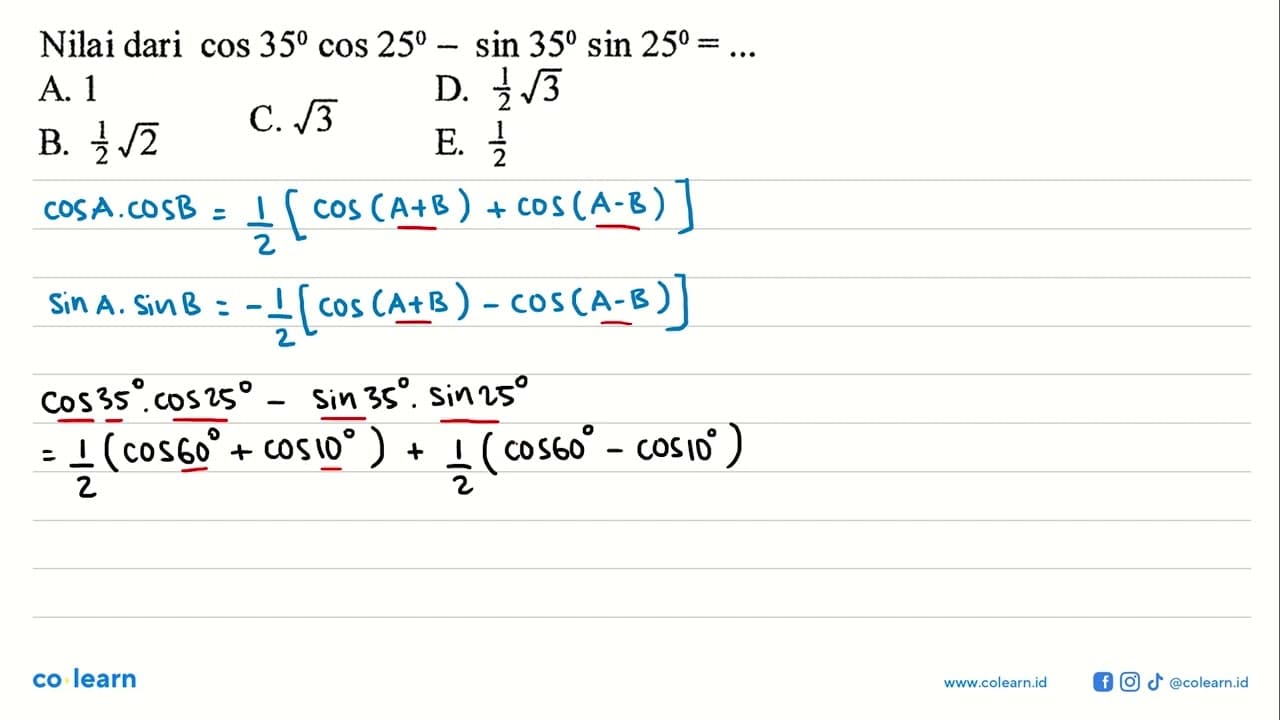 Nilai dari cos 35⁰ cos 25⁰ – sin 35⁰ sin 25⁰ = ...
A. 1
B. 1/2 √2
C. √3
D. 1/2 √3
E. 1/2
cosA.cosB = 1/2 [cos(A+B) + cos(A-B)]
sin A. sin B = -1/2 [cos(A+B) - cos(A-B)]
cos35°.cos25° - sin35°. sin25°
= 1/2 (cos60° + cos10°) + 1/2 (cos60° - cos10°)
co·learn
www.colearn.id
@colearn.id